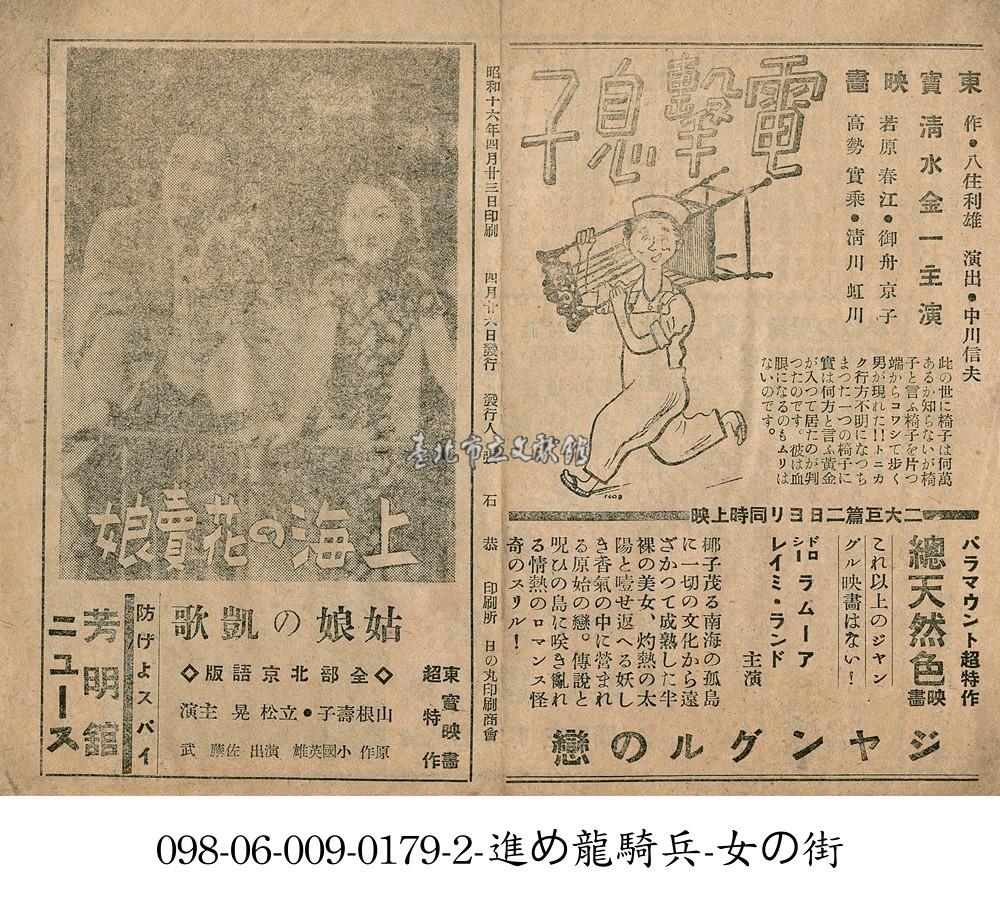 東寶映畫
電擊息子
作・八住利雄　演出・中川信夫
清水金一主演
若原春江・御舟京子
高勢實乘・清川虹川
此の世に椅子は何萬
あるか知らないが椅
子と言ふ椅子を片つ
端からコワシて歩く
男が現れた!!トニカ
ク行方不明になつち
まつた一つの椅子に
實は何方と言ふ黃金
が入つて居たのが判
つたのです。彼は血
眼になるのもムリは
ないのです。
NOB
二大巨篇二日ヨリ同時上映
パラマウント超特作
總天然色映畫
これ以上のジヤン
グル映畫はない！
ドロシー ラムーア
レイミ・ランド
主演
椰子茂る南海の孤島
に一切の文化から遠
ざかつて成熟した半
裸の美女、灼熱の太
陽と噎せ返へる妖し
き香氣の中に營まれ
る原始の戀。傳說と
呪ひの島に咲き亂れ
る情熱のロマンス怪
奇のスリル！
ジヤングルの戀
昭和十六年四月廿三日印刷　四月廿六日發行　發行人　石　恭　印刷所　日の丸印刷商會
臺北市立文獻館
上海の花賣娘
東寶映畫
超特作
姑娘の凱歌
◇全部北京語版◇
山根壽子・立松晃主演
原作 小國英雄　演出 佐藤武
防げよスパイ
芳明館
ニュース
098-06-009-0179-2-進め龍騎兵-女の街